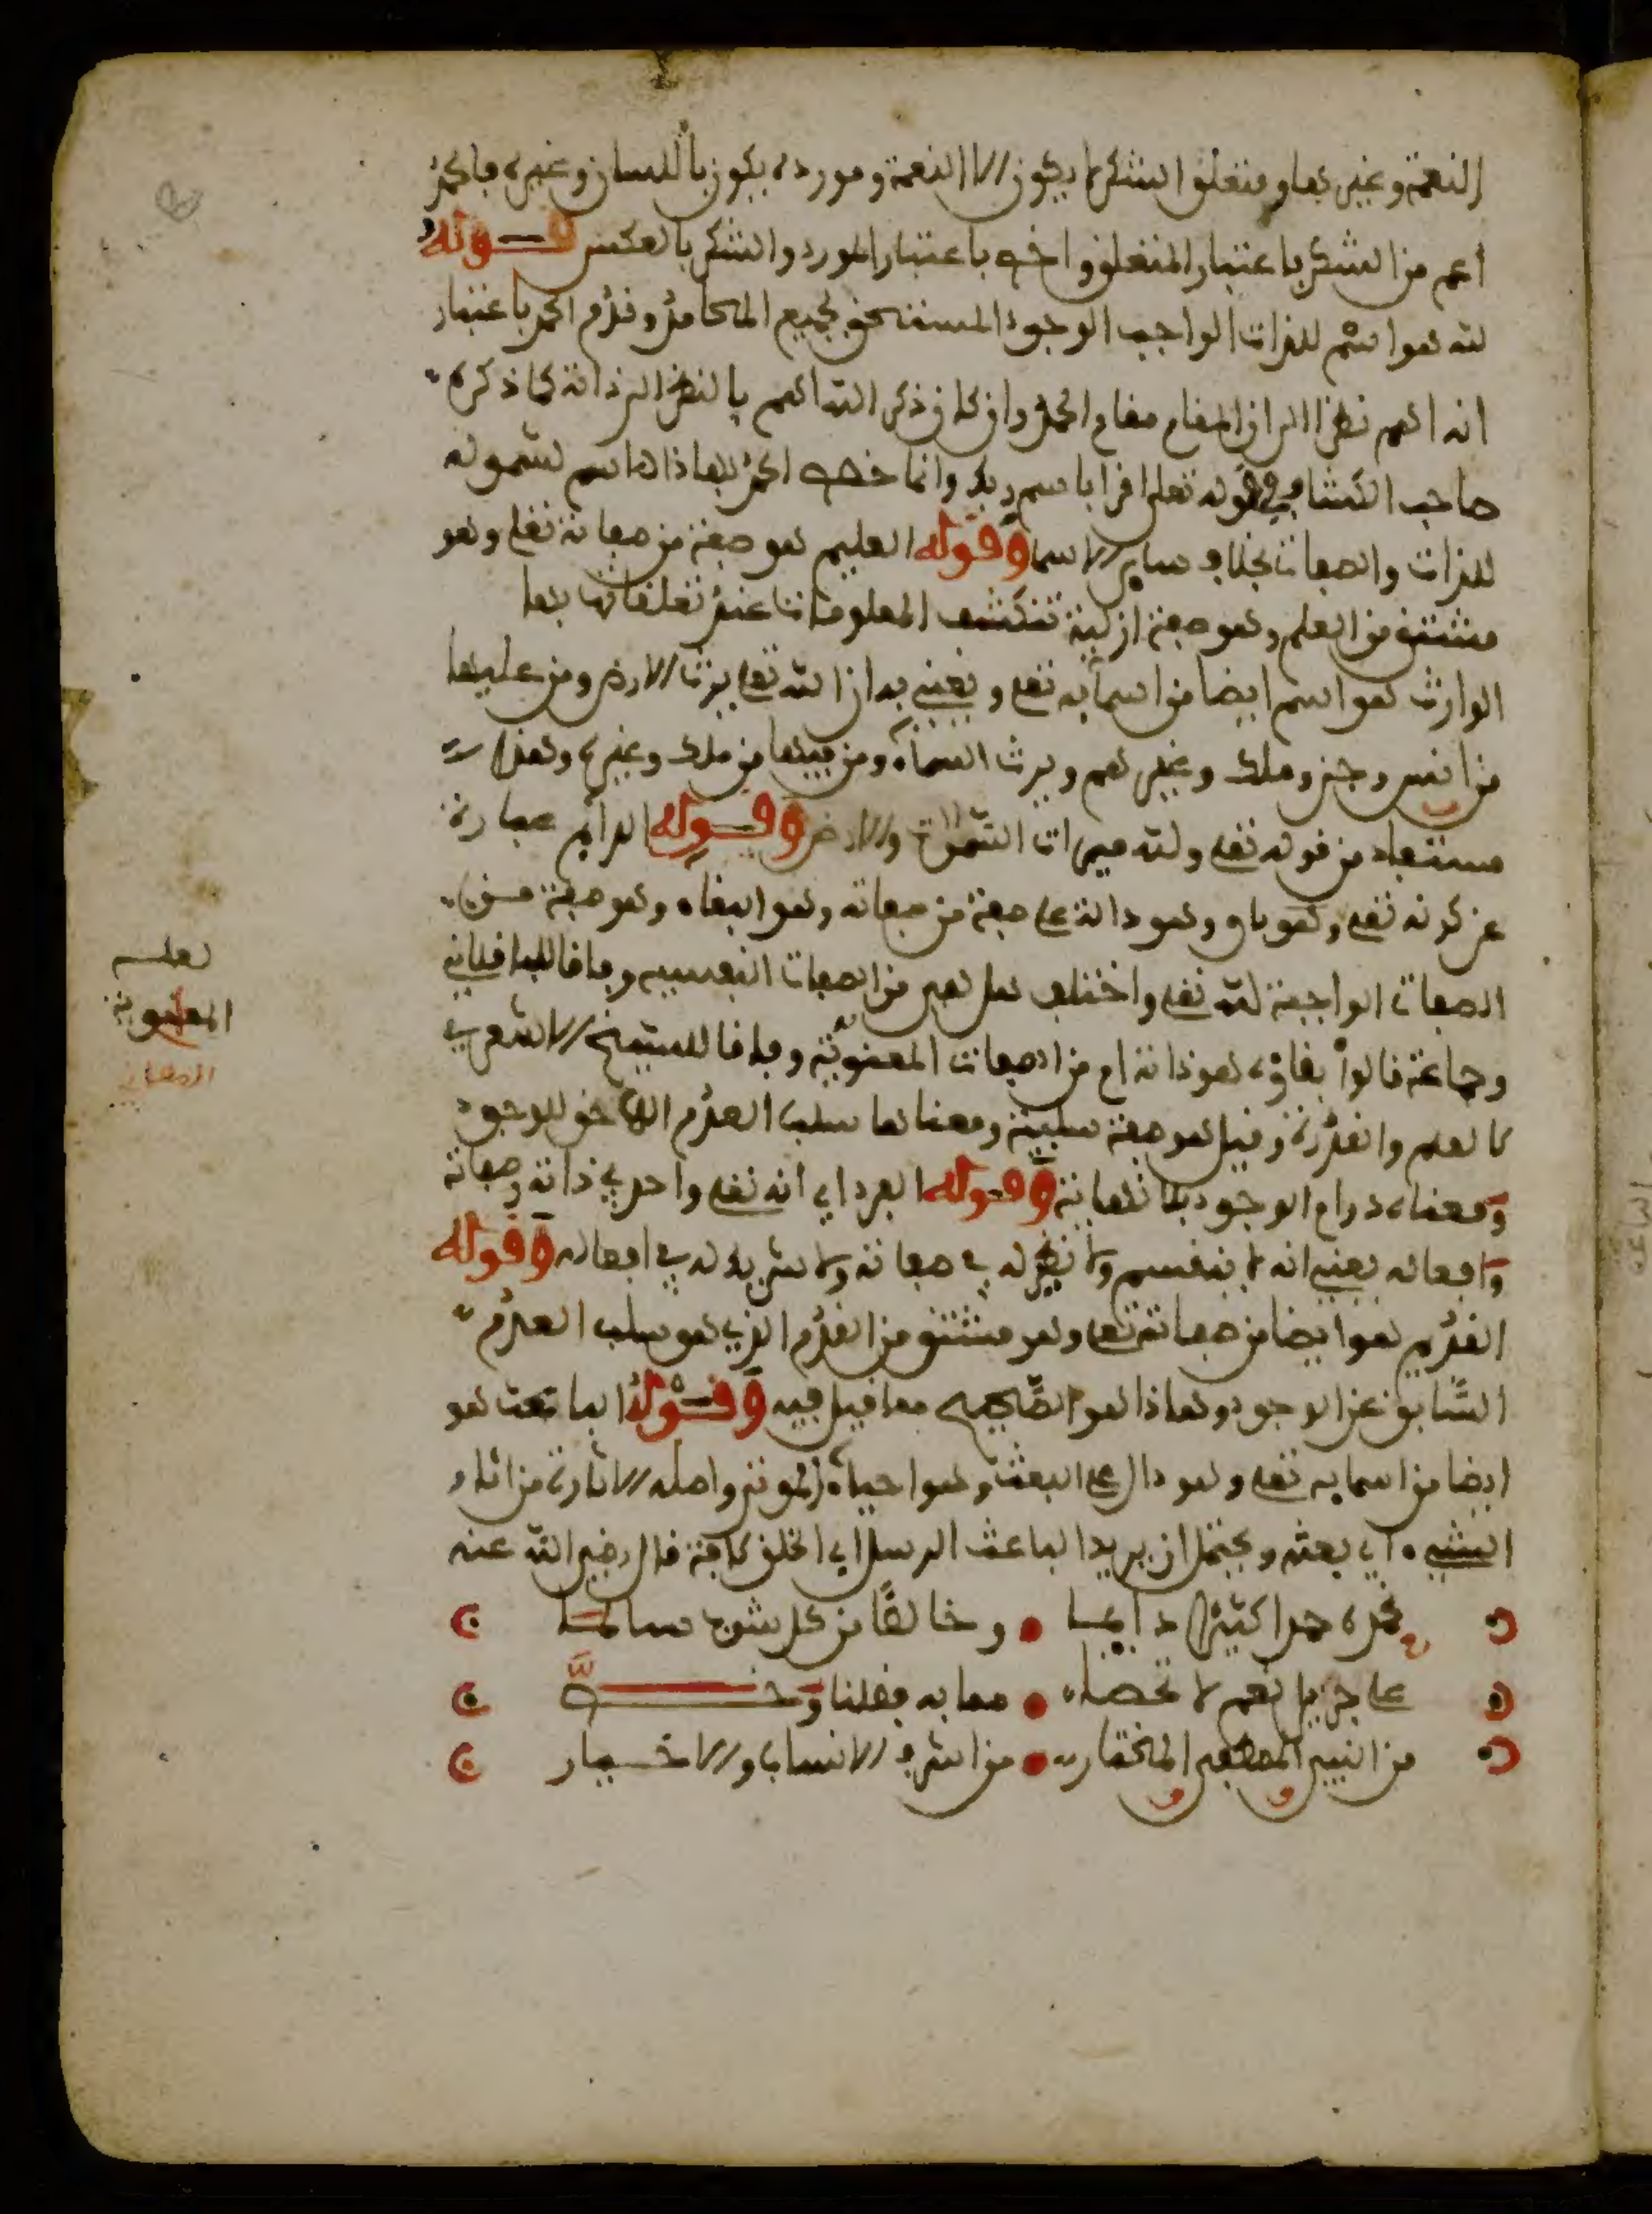 النعمة وغيرها ومتعلق الشكر لا يكون الا النعمة ومورده يكون باللسان وغيره فالحمد
اعم من الشكر باعتبار المتعلق واخص باعتبار المورد والشكر بالعكس قوله
لله هو اسم للذات الواجب الوجود المستحق لجميع المحامد وقدم الحمد باعتبار
انه اهم نظرا الى ان المقام مقام الحمد وان كان ذكر الله اهم بالنظر الى ذاته كما ذكره
صاحب الكشاف في قوله تعلى اقرا باسم ربك وانما خص الحمد بهاذا الاسم لشموله
للذات والصفات بخلاف ساير الاسما وقوله العليم هو صفة من صفاته تعلى وهو
مشتق من العلم وهو صفة ازلية تنكشف المعلومات عند تعلقاتها بها
الوارث هو اسم ايضا من اسمايه تعلى ويعني به ان الله تعلى يرث الارض ومن عليها
من انس وجن وملك وغيرهم ويرث السماء ومن فيها من ملك وغيره وهذا
مستفاد من قوله تعلى ولله ميراث السموات والارض وقوله الدايم عبارة
عن كونه تعلى وهو باق وهو دالة على صفة من صفاته وهو البقاء وهو صفة من
الصفات الواجبة لله تعلى واختلف هل هي من الصفات النفسية وبه قال الباقلاني
وجماعة قالوا بقاؤه هو ذاته ام من الصفات المعنوية وبه قال الشيخ الاشعري
كالعلم والقدرة وقيل هو صفة سلبية ومعناها سلب العدم اللاحق للوجود
ومعناه دوام الوجود بلا نهاية وقوله الفرد اي انه تعلى واحد في ذاته وصفاته
وافعاله يعني انه لا ينقسم ولا نظير له في صفاته ولا شريك له في افعاله وقوله
القديم هو ايضا من صفاته تعلى وهو مشتق من القدم الذي هو سلب العدم
السابق عن الوجود وهاذا هو الصحيح مما قيل فيه وقوله الباعث هو
ايضا من اسمايه تعلى وهو دال على البعث وهو احياء الموتى واصله الاثارة من اثار
الشيء اي بعثه ويحتمل ان يريد الباعث الرسل الى الخلق كافة قال رضي الله عنه
نحمده حمدا كثيرا دايما وخالصا من كل شوب سالما
على جزيل نعم لا تحصى مما به فضلنا وخصّ
من النبي المصطفى المختار من اشرف الانساب والاخيار
المعنوية